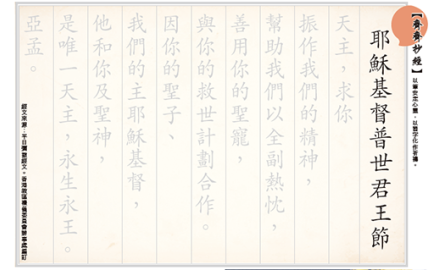 【齊齊抄經】以筆安定心靈,以習字化作祈禱。
耶穌基督普世君王節
天主,求你
振作我們的精神,
幫助我們以全副熱忱,
善用你的聖寵,
與你的救世計劃合作。
因你的聖子、
我們的主耶穌基督,
他和你及聖神,
是唯一天主,永生永王。
亞孟。
經文來源:平日彌撒經文。香港教區禮儀委員會辦事處編訂